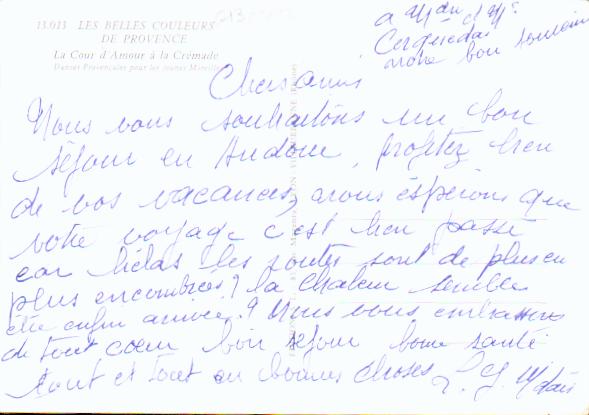 13.013 LES BELLES COULEURS
DE PROVENCE
La Cour d'Amour à la Crémade
Danses Provençales pour les jeunes
a Mdm et Mr
notre bon souvenir
Chers amis
Nous vous souhaitons un bon
séjour en, profitez bien
de vos vacances, nous espérons que
votre voyage c'est bien passé
car hélas les routes sont de plus en
plus encombrées? la chaleur semble
être enfin arrivée? Nous vous embrassons
de tout cœur bon séjour bonne santé
tout et tout en bonnes choses